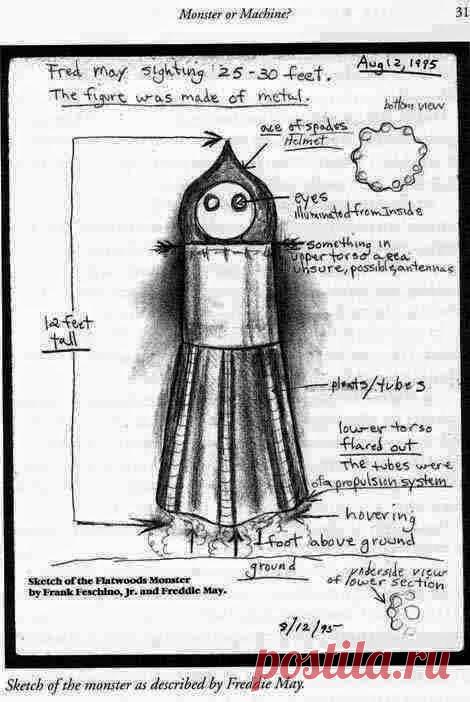 Monster or Machine?
31
Aug 12, 1995
Fred may sighting 25-30 feet.
The figure was made of metal.
bottom view
ace of spades
Helmet
eyes
illuminated from Inside
something in
upper torso area
unsure, possible, antennas
12 feet
tall
pleats/tubes
lower torso
flared out
The tubes were
of a propulsion system
hovering
1 foot above ground
ground
underside view
of lower section
Sketch of the Flatwoods Monster
by Frank Feschino, Jr. and Freddie May.
8/12/95
postila.ru
Sketch of the monster as described by Freddie May.